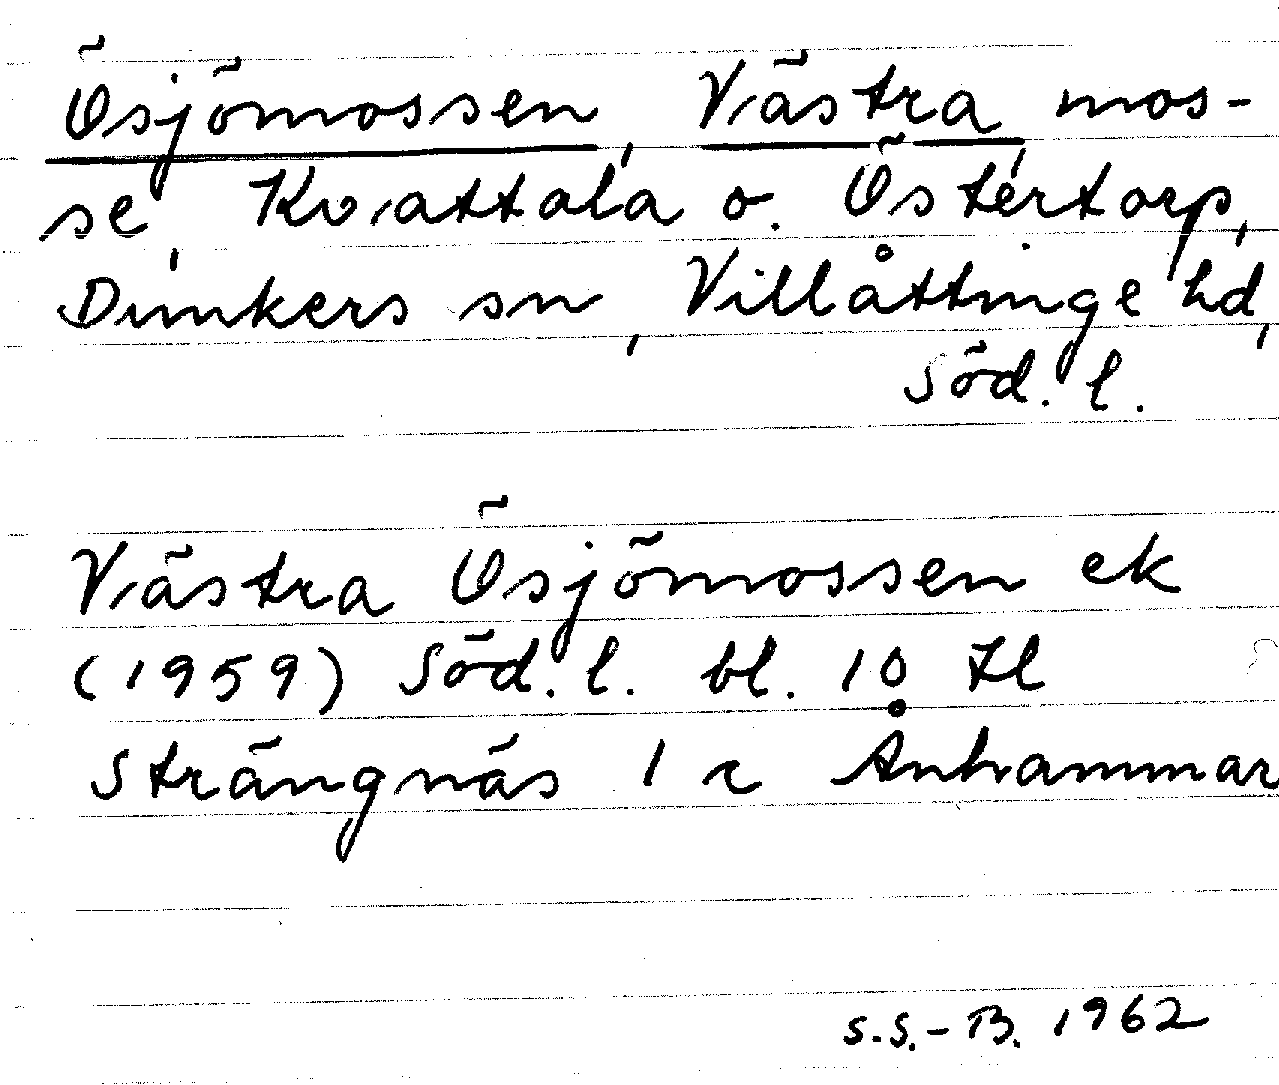 Ösjömossen, Västra, mos-
se, Kvattala o. Östertorp,
Dunkers sn, Villåttinge hd,
Söd. l.
Västra Ösjömossen ek
(1959) Söd. l. bl. 10 tl
Strängnäs 1 c Ånhammar
S.S.-B. 1962